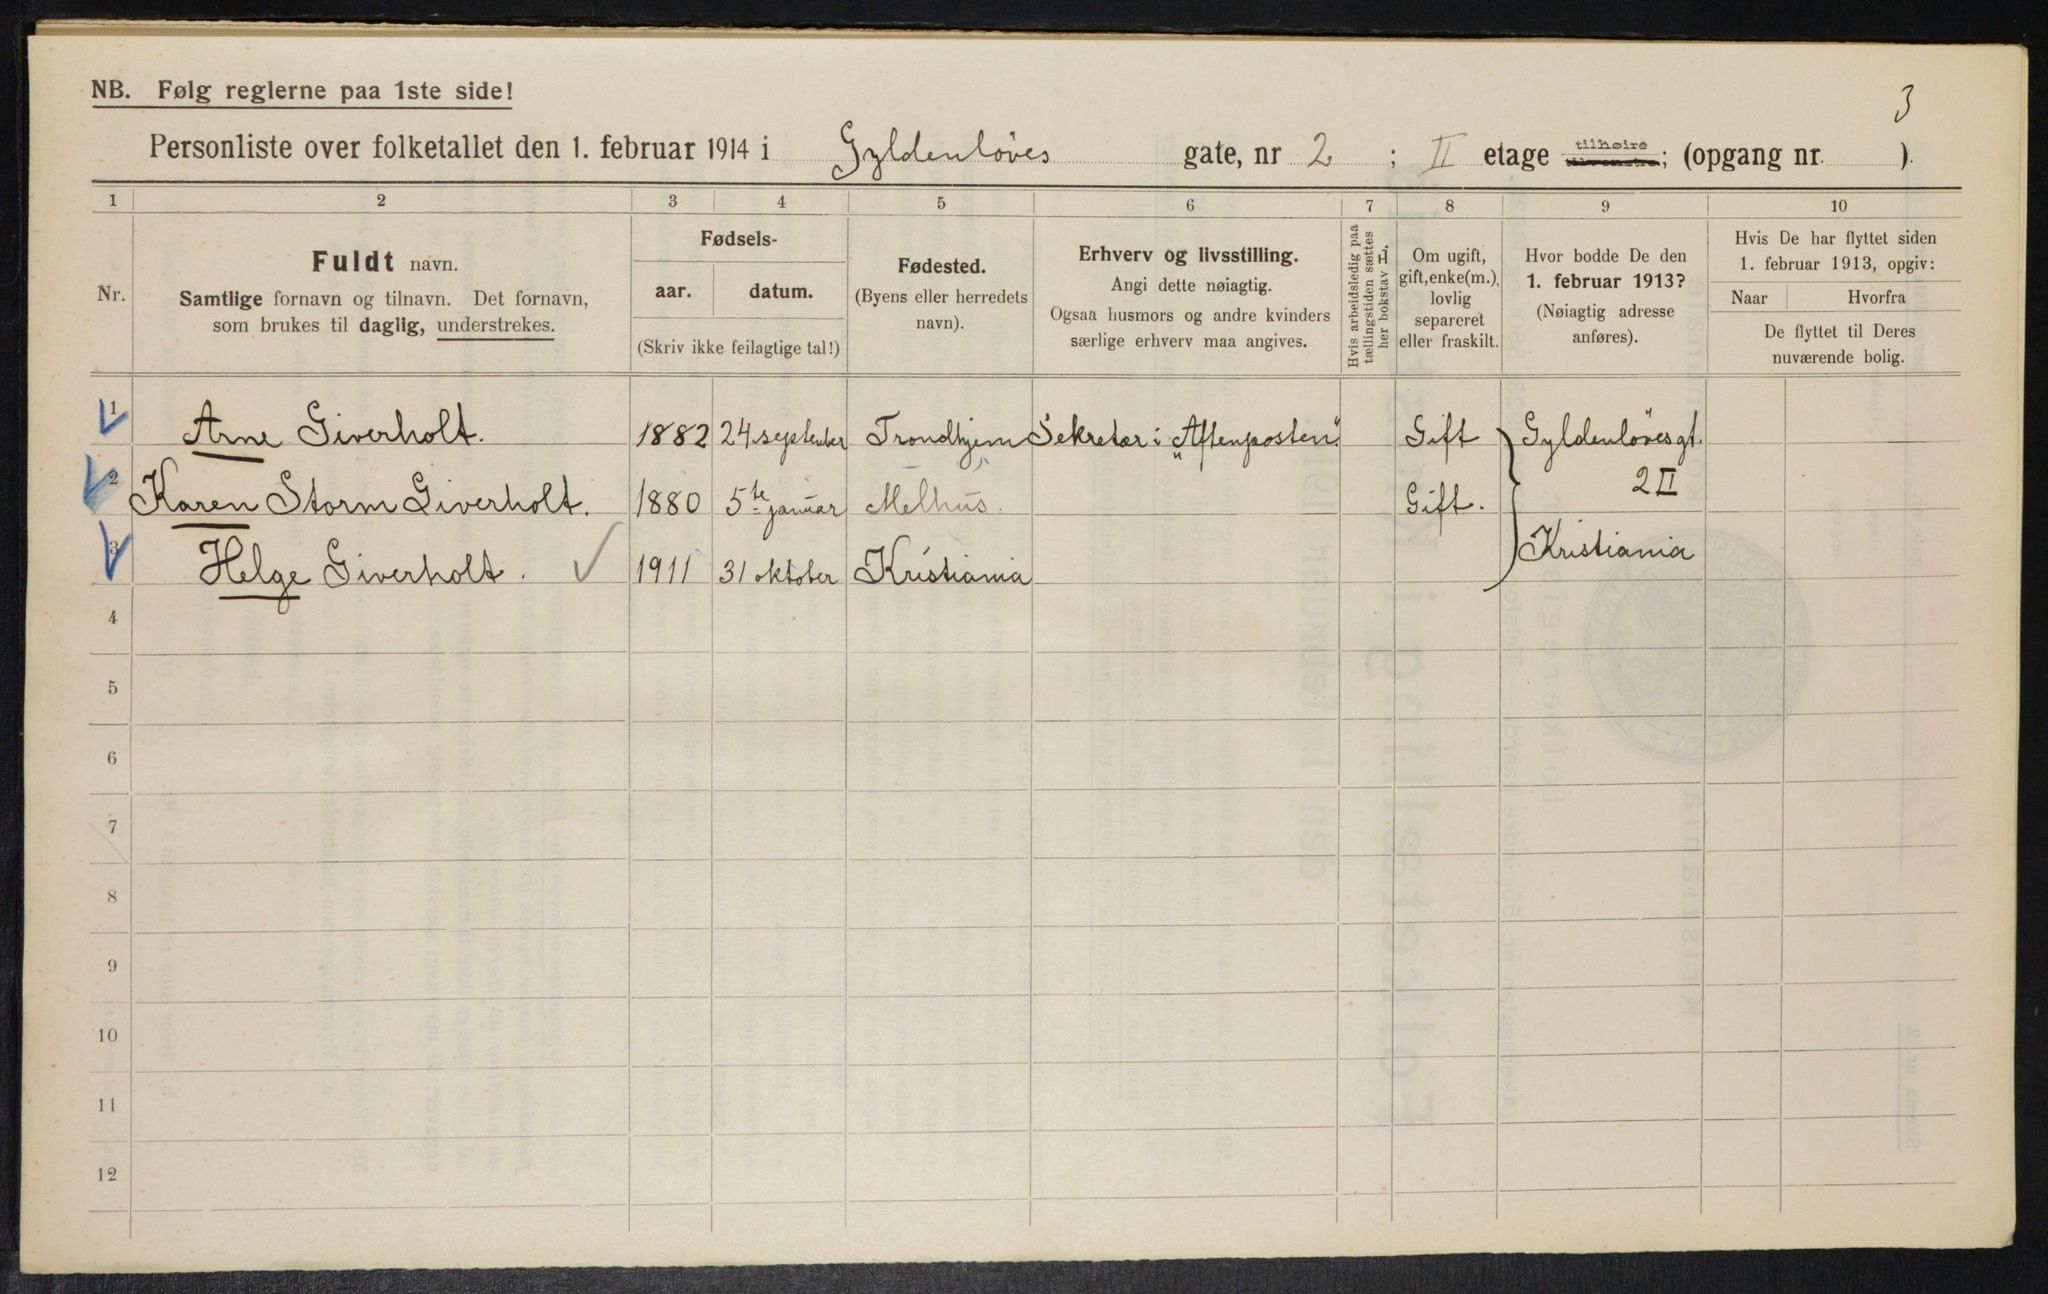 3
NB. Følg reglerne paa 1ste side!
Personliste over folketallet den 1. februar 1914 i Gyldenløves gate, nr 2 ; II etage tilhøire tilvenstre; (opgang nr. ).
1 2 3 4 5 6 7 8 9 10
Nr.
Fuldt navn.
Samtlige fornavn og tilnavn. Det fornavn,
som brukes til daglig, understrekes.
Fødsels-
aar. datum.
(Skriv ikke feilagtige tal!)
Fødested.
(Byens eller herredets
navn).
Erhverv og livsstilling.
Angi dette nøiagtig.
Ogsaa husmors og andre kvinders
særlige erhverv maa angives.
Hvis arbeidsledig paa
tællingstiden sættes
her bokstav L.
Om ugift,
gift, enke(m.),
lovlig
separeret
eller fraskilt.
Hvor bodde De den
1. februar 1913?
(Nøiagtig adresse
anføres).
Hvis De har flyttet siden
1. februar 1913, opgiv:
Naar Hvorfra
De flyttet til Deres
nuværende bolig.
1 Arne Giverholt. 1882 24. september Trondhjem Sekretær i „Aftenposten". Gift Gyldenløvesgt.
2 II
2 Karen Storm Giverholt. 1880 5te januar Melhus. Gift.
3 Helge Giverholt. 1911 31 oktober Kristiania Kristiania
4
5
6
7
8
9
10
11
12